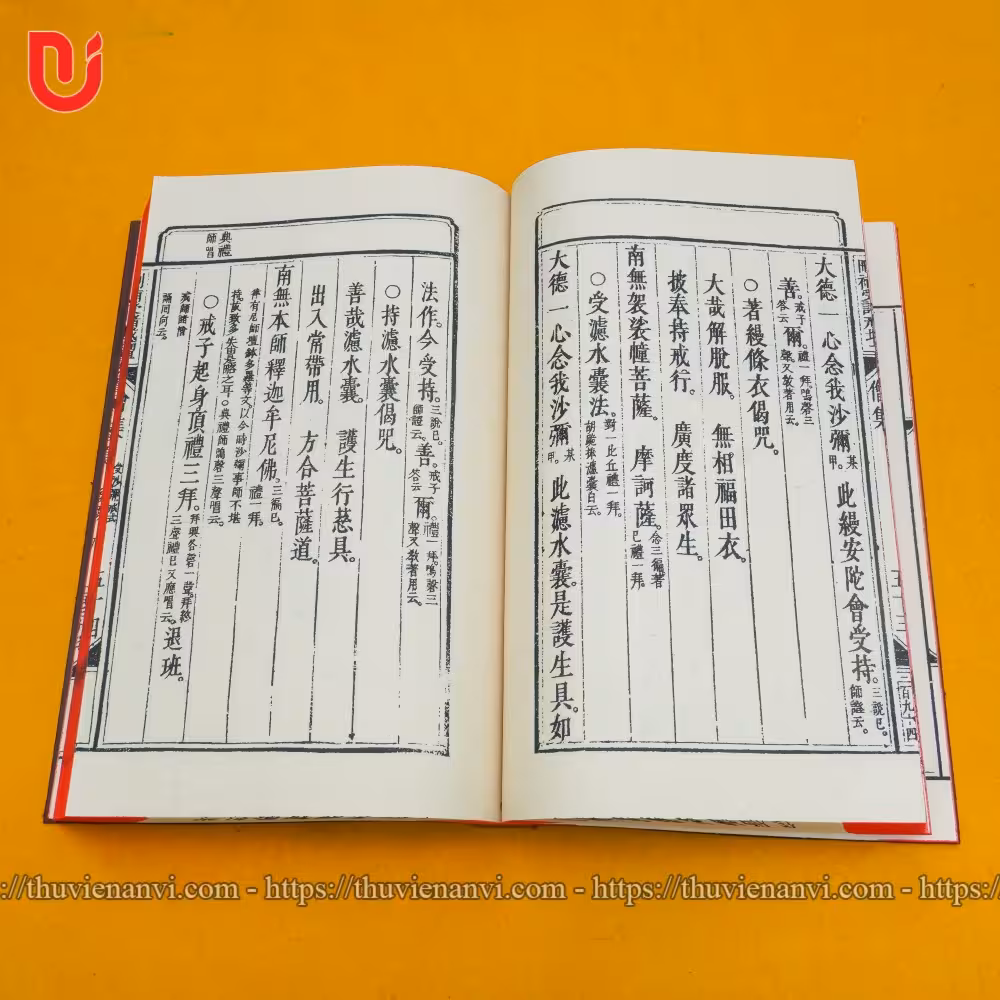 大德一心念我沙彌某甲。此縵安陀會受持。三說已。師證云。
善。戒子答云爾。禮一拜。鳴磬三聲又教著用云。
○著縵條衣偈咒。
大哉解脫服。 無相福田衣。
披奉持戒行。 廣度諸眾生。
南無袈裟幢菩薩。 摩訶薩。念三徧著已禮一拜。
○受濾水囊法。對一比丘禮一拜。胡跪捧濾囊白云。
大德一心念我沙彌某甲。此濾水囊。是護生具。如
法作。今受持。三說已。師證云。善。戒子答云爾。禮一拜。鳴磬三聲又教著用云。
○持濾水囊偈咒。
善哉濾水囊。 護生行慈具。
出入常帶用。 方合菩薩道。
南無本師釋迦牟尼佛。三徧已。禮一拜。
○戒子起身頂禮三拜。退班。
典禮師唱
五十三
三百九十四
https://thuvienanvi.com - https://thuvienanvi.com - https://thuvienanvi.com